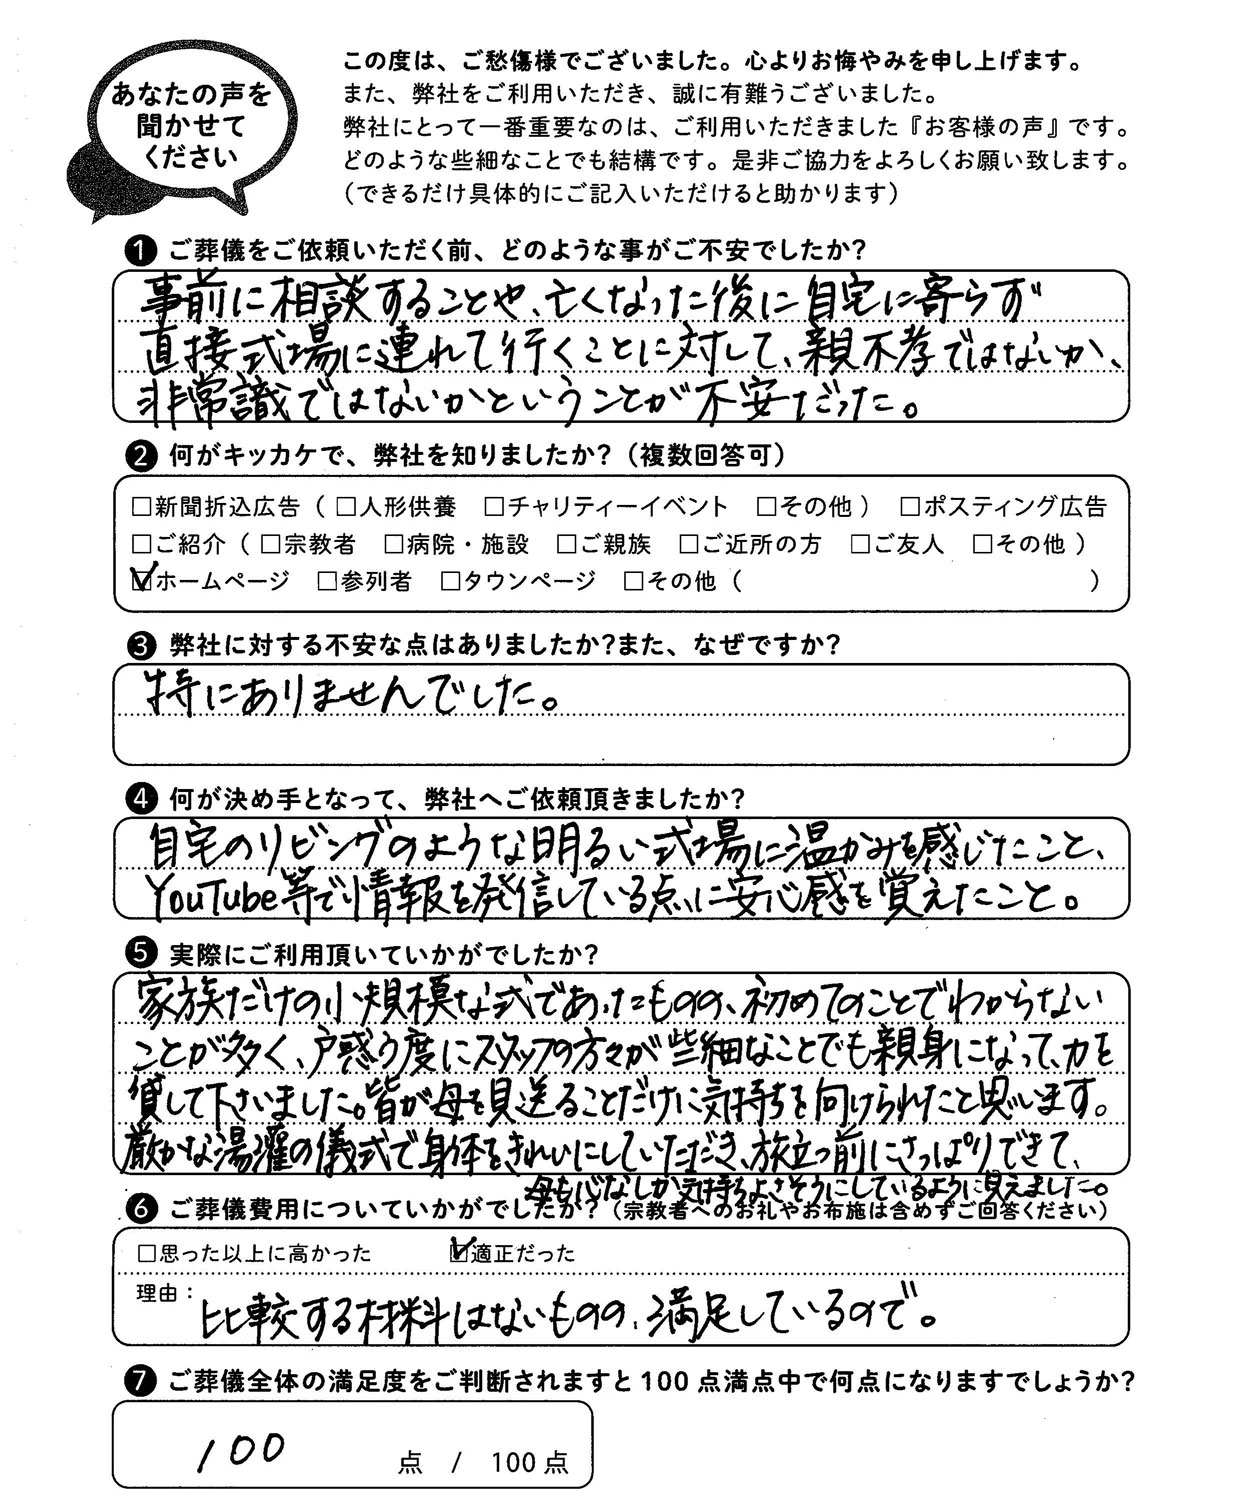 あなたの声を
聞かせて
ください
この度は、ご愁傷様でございました。心よりお悔やみを申し上げます。
また、弊社をご利用いただき、誠に有難うございました。
弊社にとって一番重要なのは、ご利用いただきました『お客様の声』です。
どのような些細なことでも結構です。是非ご協力をよろしくお願い致します。
（できるだけ具体的にご記入いただけると助かります）
❶ ご葬儀をご依頼いただく前、どのような事がご不安でしたか？
事前に相談することや、亡くなった後に自宅に寄らず
直接式場に連れて行くことに対して、親不孝ではないか、
非常識ではないかということが不安だった。
❷ 何がキッカケで、弊社を知りましたか？（複数回答可）
□新聞折込広告（ □人形供養 □チャリティーイベント □その他 ） □ポスティング広告
□ご紹介（ □宗教者 □病院・施設 □ご親族 □ご近所の方 □ご友人 □その他 ）
☑ホームページ □参列者 □タウンページ □その他（ ）
❸ 弊社に対する不安な点はありましたか？また、なぜですか？
特にありませんでした。
❹ 何が決め手となって、弊社へご依頼頂きましたか？
自宅のリビングのような明るい式場に温かみを感じたこと、
YouTube等で情報を発信している点に安心感を覚えたこと。
❺ 実際にご利用頂いていかがでしたか？
家族だけの小規模な式であったものの、初めてのことでわからない
ことが多く、戸惑う度にスタッフの方々が些細なことでも親身になって、力を
貸して下さいました。皆が母を見送ることだけに気持ちを向けられたと思います。
厳かな湯灌の儀式で身体をきれいにしていただき、旅立つ前にさっぱりできて、
母も心なしか気持ちよさそうにしているように見えました。
❻ ご葬儀費用についていかがでしたか？（宗教者へのお礼やお布施は含めずご回答ください）
□思った以上に高かった ☑適正だった
理由：比較する材料はないものの、満足しているので。
❼ ご葬儀全体の満足度をご判断されますと100点満点中で何点になりますでしょうか？
100 点 / 100点